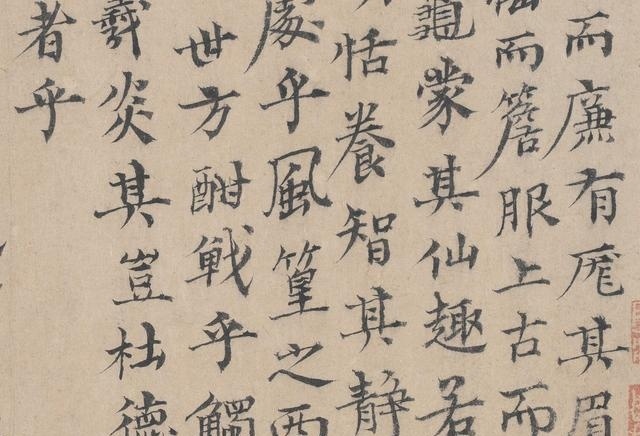 而廉有厖其眉
而簷服上古而
龜蒙其仙趣若
恬養智其静
處乎風篁之西
世方酣戰乎觸
羲炎其豈杜德
者乎